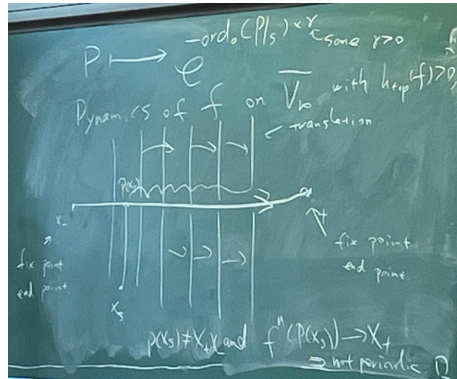 P ⟼ e^{-ord_0(P|_S) × γ} ← some γ>0
Dynamics of f on V̄_∞ with h_top(f)>0
← translation
p(x_s)
x_-
x_+
fix point
end point
fix point
end point
x_s
p(x_s) ≠ x_+, x_- and f^n(p(x_s)) → x_+
⇒ not periodic □